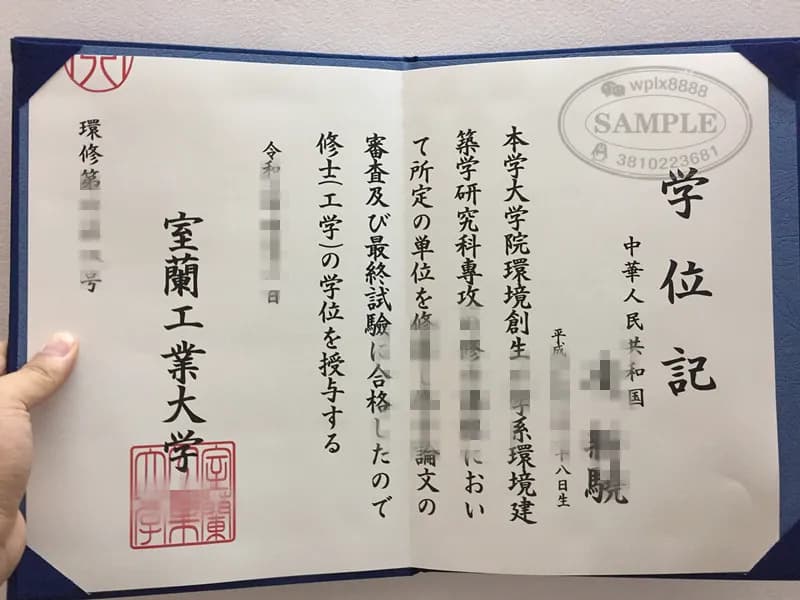 wplx8888
SAMPLE
3810223681
学位記
中華人民共和国
平成 十八日生
本学大学院環境創生 学系環境建
築学研究科専攻 におい
て所定の単位を修 論文の
審査及び最終試験に合格したので
修士(工学)の学位を授与する
令和 日
室蘭工業大学
環修第 号